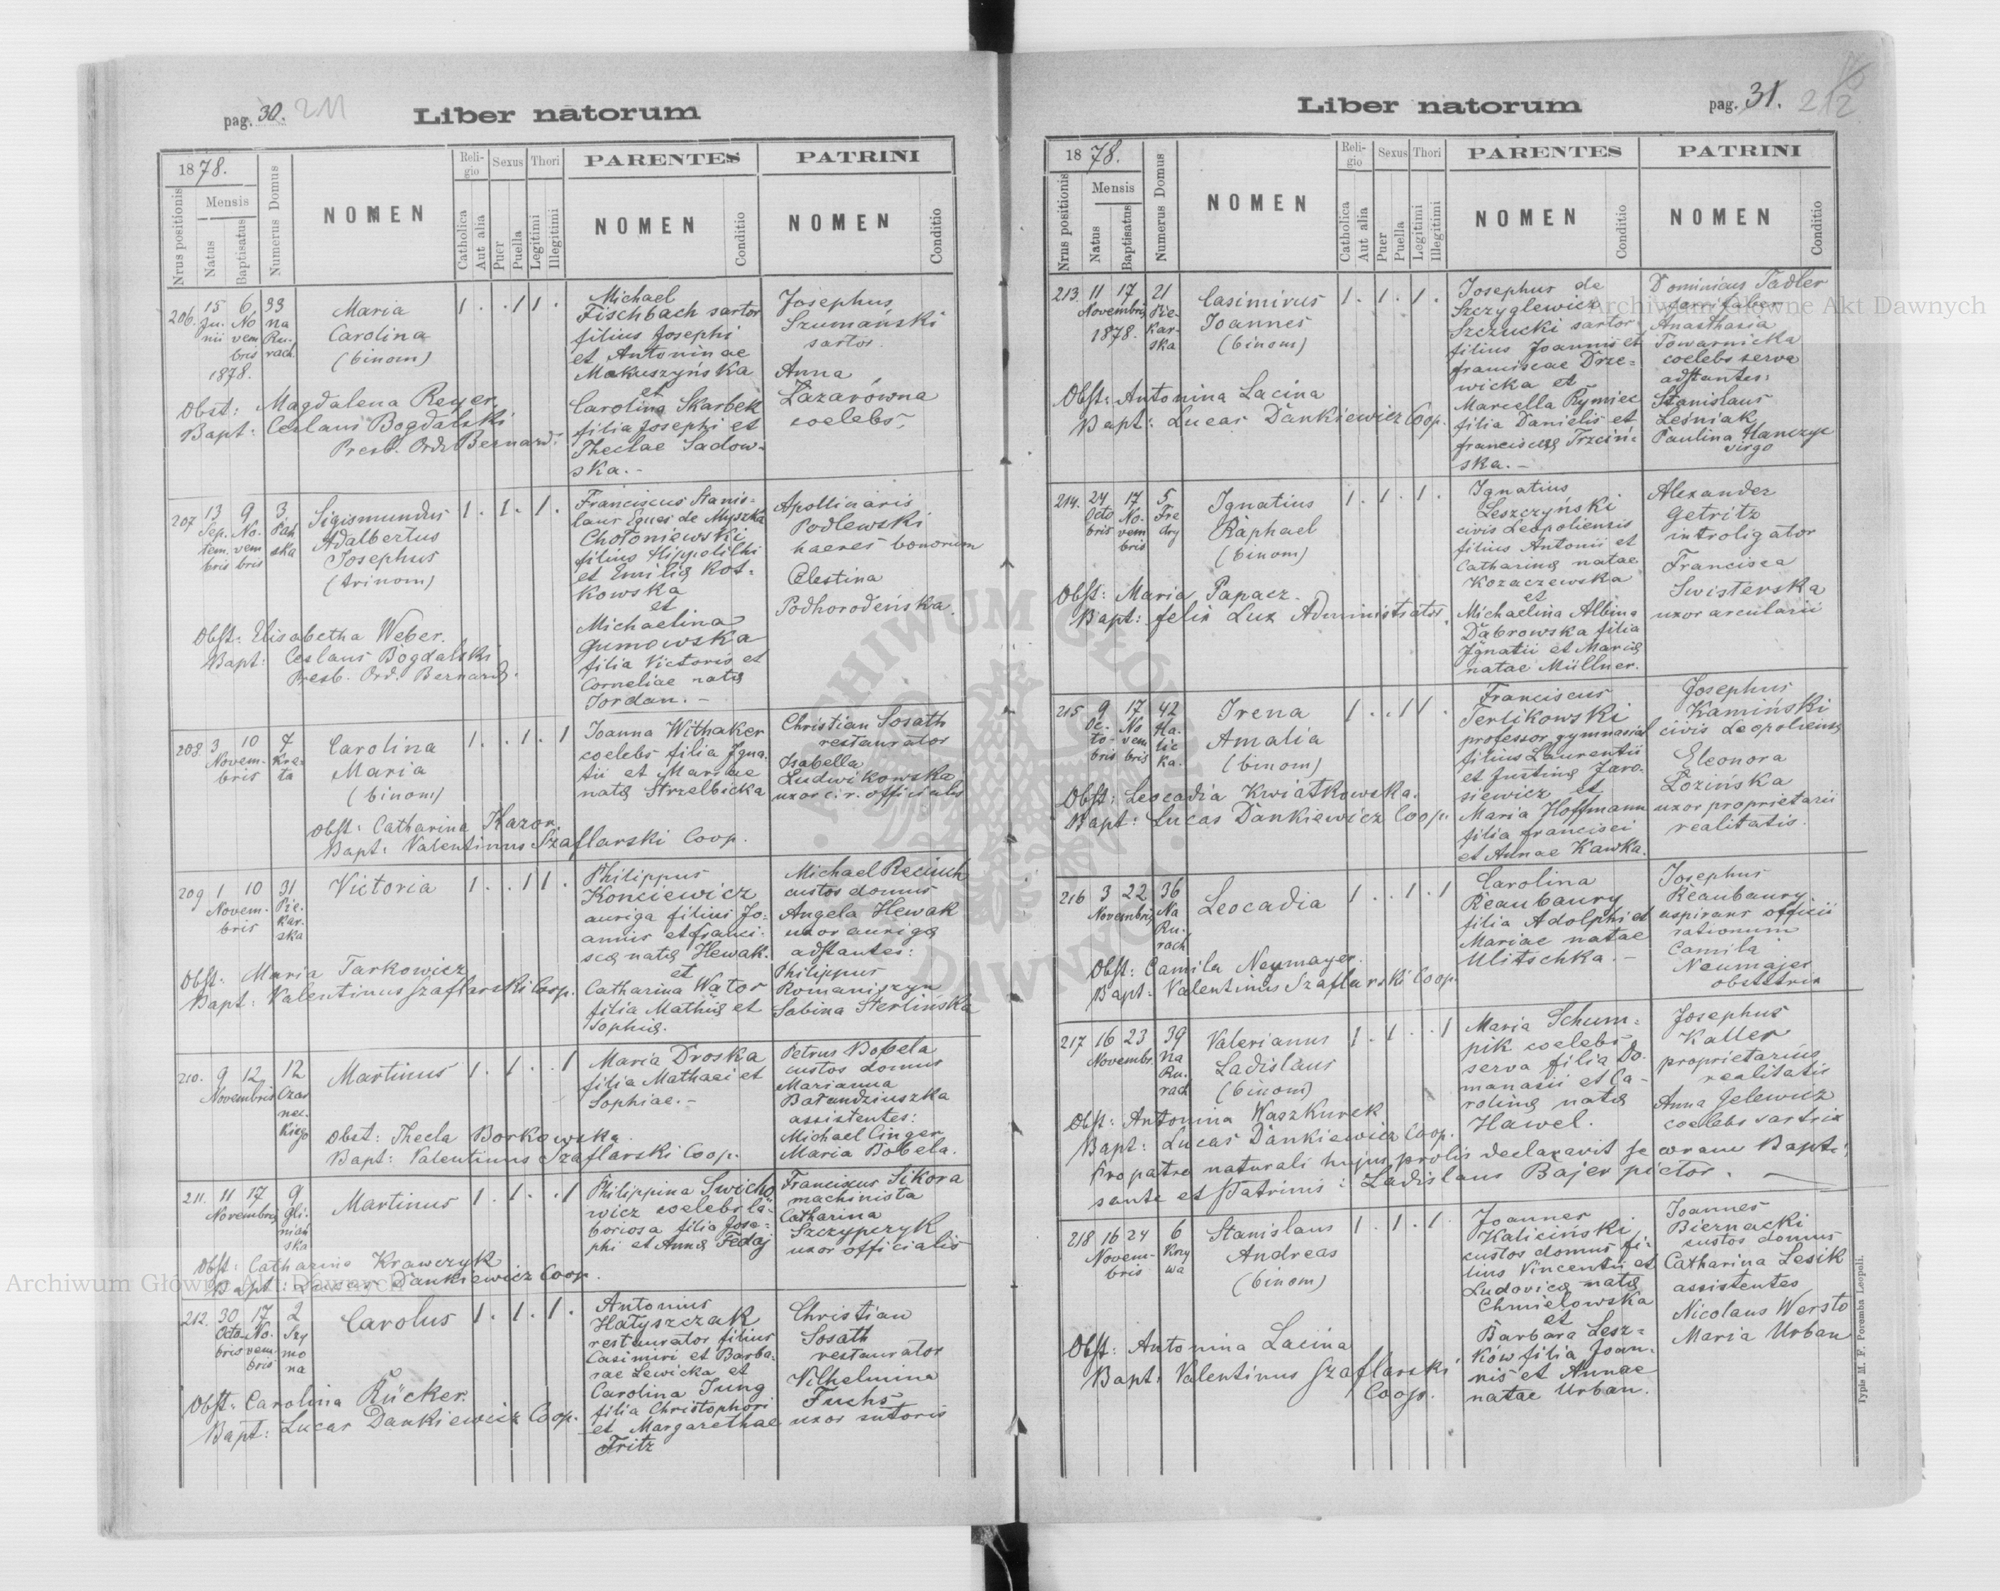 pag. 30. 211
Liber natorum
1878.
Nrus positionis
Mensis
Natus
Baptisatus
Numerus Domus
NOMEN
Religio
Catholica
Aut alia
Sexus
Puer
Puella
Thori
Legitimi
Illegitimi
PARENTES
NOMEN
Conditio
PATRINI
NOMEN
Conditio
206. 15 Junii 6 Novembris 1878. 33 na Rurach
Maria
Carolina
(binom)
1 . . 1 1 .
Michael
Fischbach sartor
filius Josephi
et Antoninae
Makuszyńska
et
Carolina Skarbek
filia Josephi et
Theclae Sadow-
ska. -
Josephus
Szumański
sartor
Anna
Lazarówna
coelebs
Obst: Magdalena Reyer
Bapt: Ceslaus Bogdalski
Presb. Ord. Bernard.
207 13 Septembris 9 Novembris 3 Pańska
Sigismundus
Adalbertus
Josephus
(trinom)
1 . 1 . 1 .
Franciscus Stanis-
laus Eques de Myszka
Chołoniewski
filius Hippolithi
et Emiliæ Kos-
kowska
et
Michaelina
Gumowska
filia Victoris et
Corneliae natæ
Jordan. -
Apollinaris
Podlewski
haeres bonorum
Celestina
Podhorodeńska
Obst: Elisabetha Weber.
Bapt: Ceslaus Bogdalski
Presb. Ord. Bernard.
208. 3 10 Novembris 4 Kręta
Carolina
Maria
(binom)
1 . . 1 . 1
Joanna Withaker
coelebs filia Igna-
tii et Mariae
natæ Strzelbicka
Christian Sosath
restaurator
Isabella
Ludwikowska
uxor c. r. officialis
Obst: Catharina Kazor
Bapt: Valentinus Szaflarski Coop.
209 1 10 Novembris 31 Piekarska
Victoria
1 . . 1 1 .
Philippus
Konciewicz
auriga filius Jo-
annis et Franci-
scæ natæ Hewak.
et
Catharina Wator
filia Mathiæ et
Sophiæ.
Michael Reciuch
custos domus
Angela Hewak
uxor aurigæ
adstantes:
Philippus
Romaniszyn
Sabina Sterlińska
Obst: Maria Tarkowicz
Bapt: Valentinus Szaflarski Coop.
210. 9 12 Novembris 12 Czarneckiego
Martinus
1 . 1 . . 1
Maria Droska
filia Mathaei et
Sophiae. -
Petrus Bobela
custos domus
Marianna
Bałandziuszka
assistentes:
Michael Cinger
Maria Bobela.
Obst: Thecla Borkowska
Bapt: Valentinus Szaflarski Coop.
211. 11 17 Novembris 9 Gliniańska
Martinus
1 . 1 . . 1
Philippina Swicho
wicz coelebs la-
boriosa filia Jose-
phi et Annæ Fedaj
Franciscus Sikora
machinista
Catharina
Szczypczyk
uxor officialis
Obst: Catharina Krawczyk
Bapt: Lucas Dankiewicz Coop.
212. 30 Octobris 17 Novembris 2 Szymona
Carolus
1 . 1 . 1 .
Antonius
Hatyszczak
restaurator filius
Casimiri et Barba-
rae Lewicka et
Carolina Jung
filia Christophori
et Margarethae
Fritz
Christian
Sosath
restaurator
Wilhelmina
Fuchs
uxor sutoris
Obst: Carolina Rücker.
Bapt: Lucas Dankiewicz Coop.
Liber natorum
pag. 31. 212
1878.
Nrus positionis
Mensis
Natus
Baptisatus
Numerus Domus
NOMEN
Religio
Catholica
Aut alia
Sexus
Puer
Puella
Thori
Legitimi
Illegitimi
PARENTES
NOMEN
Conditio
PATRINI
NOMEN
Conditio
213. 11 17 Novembris 1878. 21 Piekarska
Casimirus
Joannes
(binom)
1 . 1 . 1 .
Josephus de
Szczyglewicz
Szczucki sartor
filius Joannis et
Franciscae Drze-
wicka et
Marcella Rymiec
filia Danielis et
Franciscæ Trzciń-
ska. -
Dominicus Tadler
faber
Anasthasia
Towarnicka
coelebs serva
adstantes:
Stanislaus
Leśniak
Paulina Hanczyc
virgo
Obst: Antonina Lacina
Bapt: Lucas Dankiewicz Coop.
214. 24 Octobris 17 Novembris 5 Fredry
Ignatius
Raphael
(binom)
1 . 1 . 1 .
Ignatius
Leszczyński
civis Leopoliensis
filius Antonii et
Catharinæ natae
Kozaczewska
et
Michaelina Albina
Dąbrowska filia
Ignatii et Mariæ
natae Müllner.
Alexander
Getritz
introligator
Francisca
Swisterska
uxor arcularii
Obst: Maria Papacz.
Bapt: Felix Lux Administrator.
215 9 Octobris 17 Novembris 42 Halicka.
Irena
Amalia
(binom)
1 . . 1 1 .
Franciscus
Terlikowski
professor gymnasial
filius Laurentii
et Justinæ Jaro-
siewicz et
Maria Hoffmann
filia Francisci
et Annae Kawka.
Josephus
Kamiński
civis Leopoliensis
Eleonora
Łozińska
uxor proprietarii
realitatis.
Obst: Leocadia Kwiatkowska.
Bapt: Lucas Dankiewicz Coop.
216 3 22 Novembris 36 Na Rurach
Leocadia
1 . . 1 . 1
Carolina
Reaubaury
filia Adolphi et
Mariae natae
Ulitschka. -
Josephus
Reaubaury
aspirans officii
rationum
Camila
Neumajer
obstetrix
Obst: Camila Neymayer.
Bapt: Valentinus Szaflarski Coop.
217 16 23 Novembr. 39 na Rurach
Valerianus
Ladislaus
(binom)
1 . 1 . . 1
Maria Schum-
pik coelebs
serva filia Do-
manasii et Ca-
rolinæ natæ
Hawel.
Josephus
Kaller
proprietarius
realitatis
Anna Gelewicz
coelebs sartrix
Obst: Antonina Waszkurek
Bapt: Lucas Dankiewicz Coop.
Pro patre naturali hujus prolis declaravit se coram Bapti-
sante et Patrinis: Ladislaus Bajer pictor.
218 16 24 Novembris 6 Krzywa
Stanislaus
Andreas
(binom)
1 . 1 . 1 .
Joannes
Kaliciński
custos domus fi-
lius Vincentii et
Ludovicæ natæ
Chmielowska
et
Barbara Lesz-
ków filia Joan-
nis et Annae
natae Urban.
Joannes
Biernacki
custos domus
Catharina Lesik
assistentes
Nicolaus Wersto
Maria Urban
Obst: Antonina Lacina
Bapt: Valentinus Szaflarski
Coop.
Typis M. F. Poremba Leopoli.
Archiwum Główne Akt Dawnych
Archiwum Główne Akt Dawnych
ARCHIWUM GŁÓWNE AKT DAWNYCH